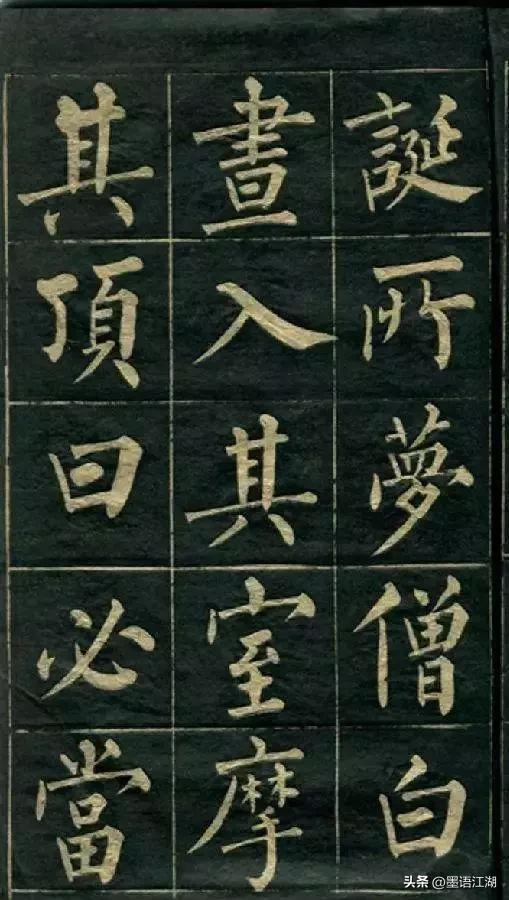 誕所夢僧白
晝入其室摩
其頂曰必當
头条 @墨语江湖